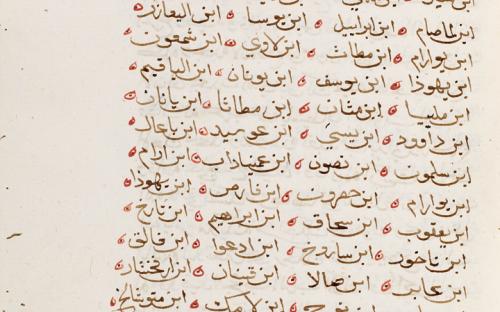 ابن لماصام ابن ايراييل ابن يوسا ابن اليعازر
ابن يوارام ابن مطاث ابن لاوي ابن شمعون
ابن يهوذا ابن يوسف ابن يونان ابن الياقيم
ابن مليا ابن منان ابن مطاثا ابن ياثان
ابن داوود ابن يسي ابن عوبيد ابن باعاز
ابن سلمون ابن نصون ابن عميناداب ابن ارام
ابن يوارام ابن حصرون ابن فارص ابن يهوذا
ابن يعقوب ابن سحاق ابن ابراهيم ابن تارخ
ابن ناخور ابن ساروخ ابن ارعوا ابن فالق
ابن عابر ابن صالا ابن قينان ابن ارفخشار
ابن نوح ابن لامك ابن متوشالخ